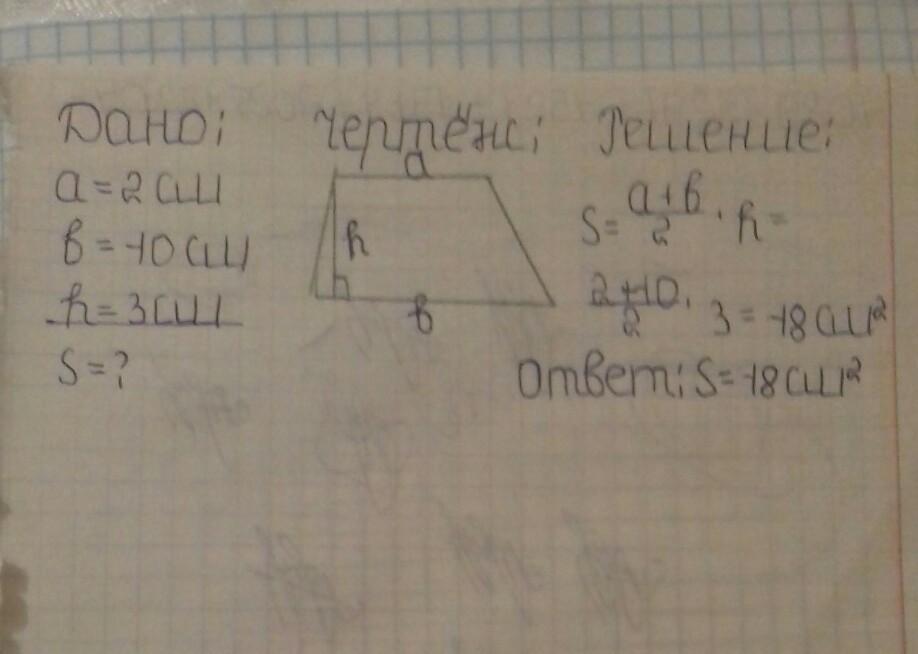 Дано:
a = 2 см
в = 10 см
h = 3 см
S = ?
Чертёж:
a
h
в
Решение:
S = (a+в)/2 · h =
(2+10)/2 · 3 = 18 см²
Ответ: S = 18 см²